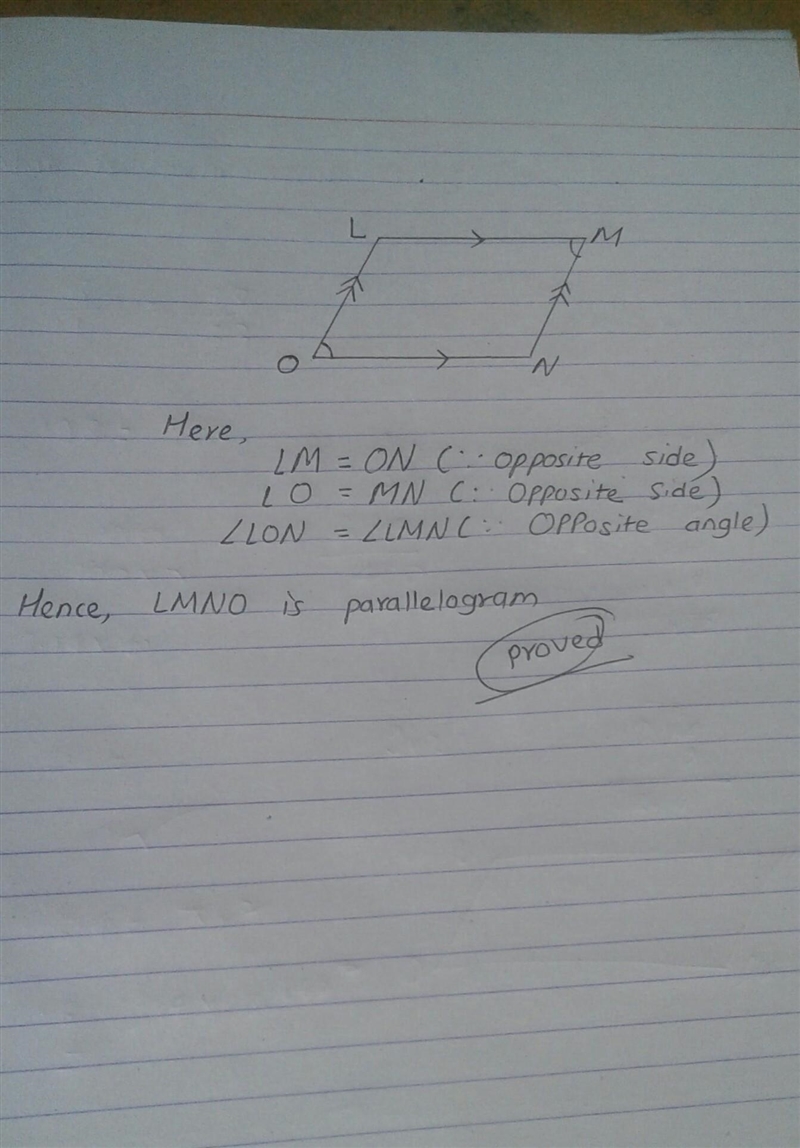 L M
O N
Here,
LM = ON (∵ opposite side)
LO = MN (∵ opposite side)
∠LON = ∠LMN (∵ opposite angle)
Hence, LMNO is parallelogram
proved